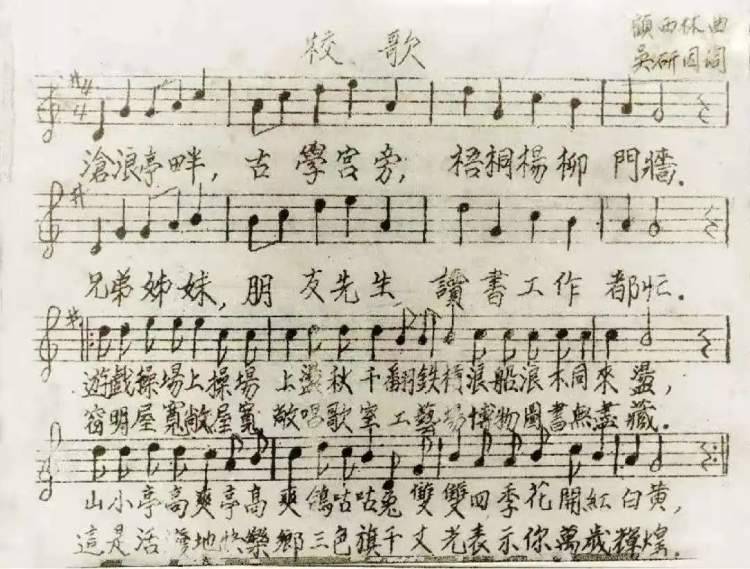 校歌
顾西林曲
吴研因词
4
4
滄浪亭畔，古學宮旁，梧桐楊柳門牆．
兄弟姊妹，朋友先生讀書工作都忙．
遊戲操場上操場上盪秋千翻鉄槓浪船浪木同來盪，
窗明屋寬敞屋寬敞唱歌室工藝場博物圖書無盡藏．
山小亭高爽亭高爽鴿咕咕兔雙雙四季花開紅白黄，
這是活潑地快樂鄉三色旗千丈光表示你萬歲輝煌．